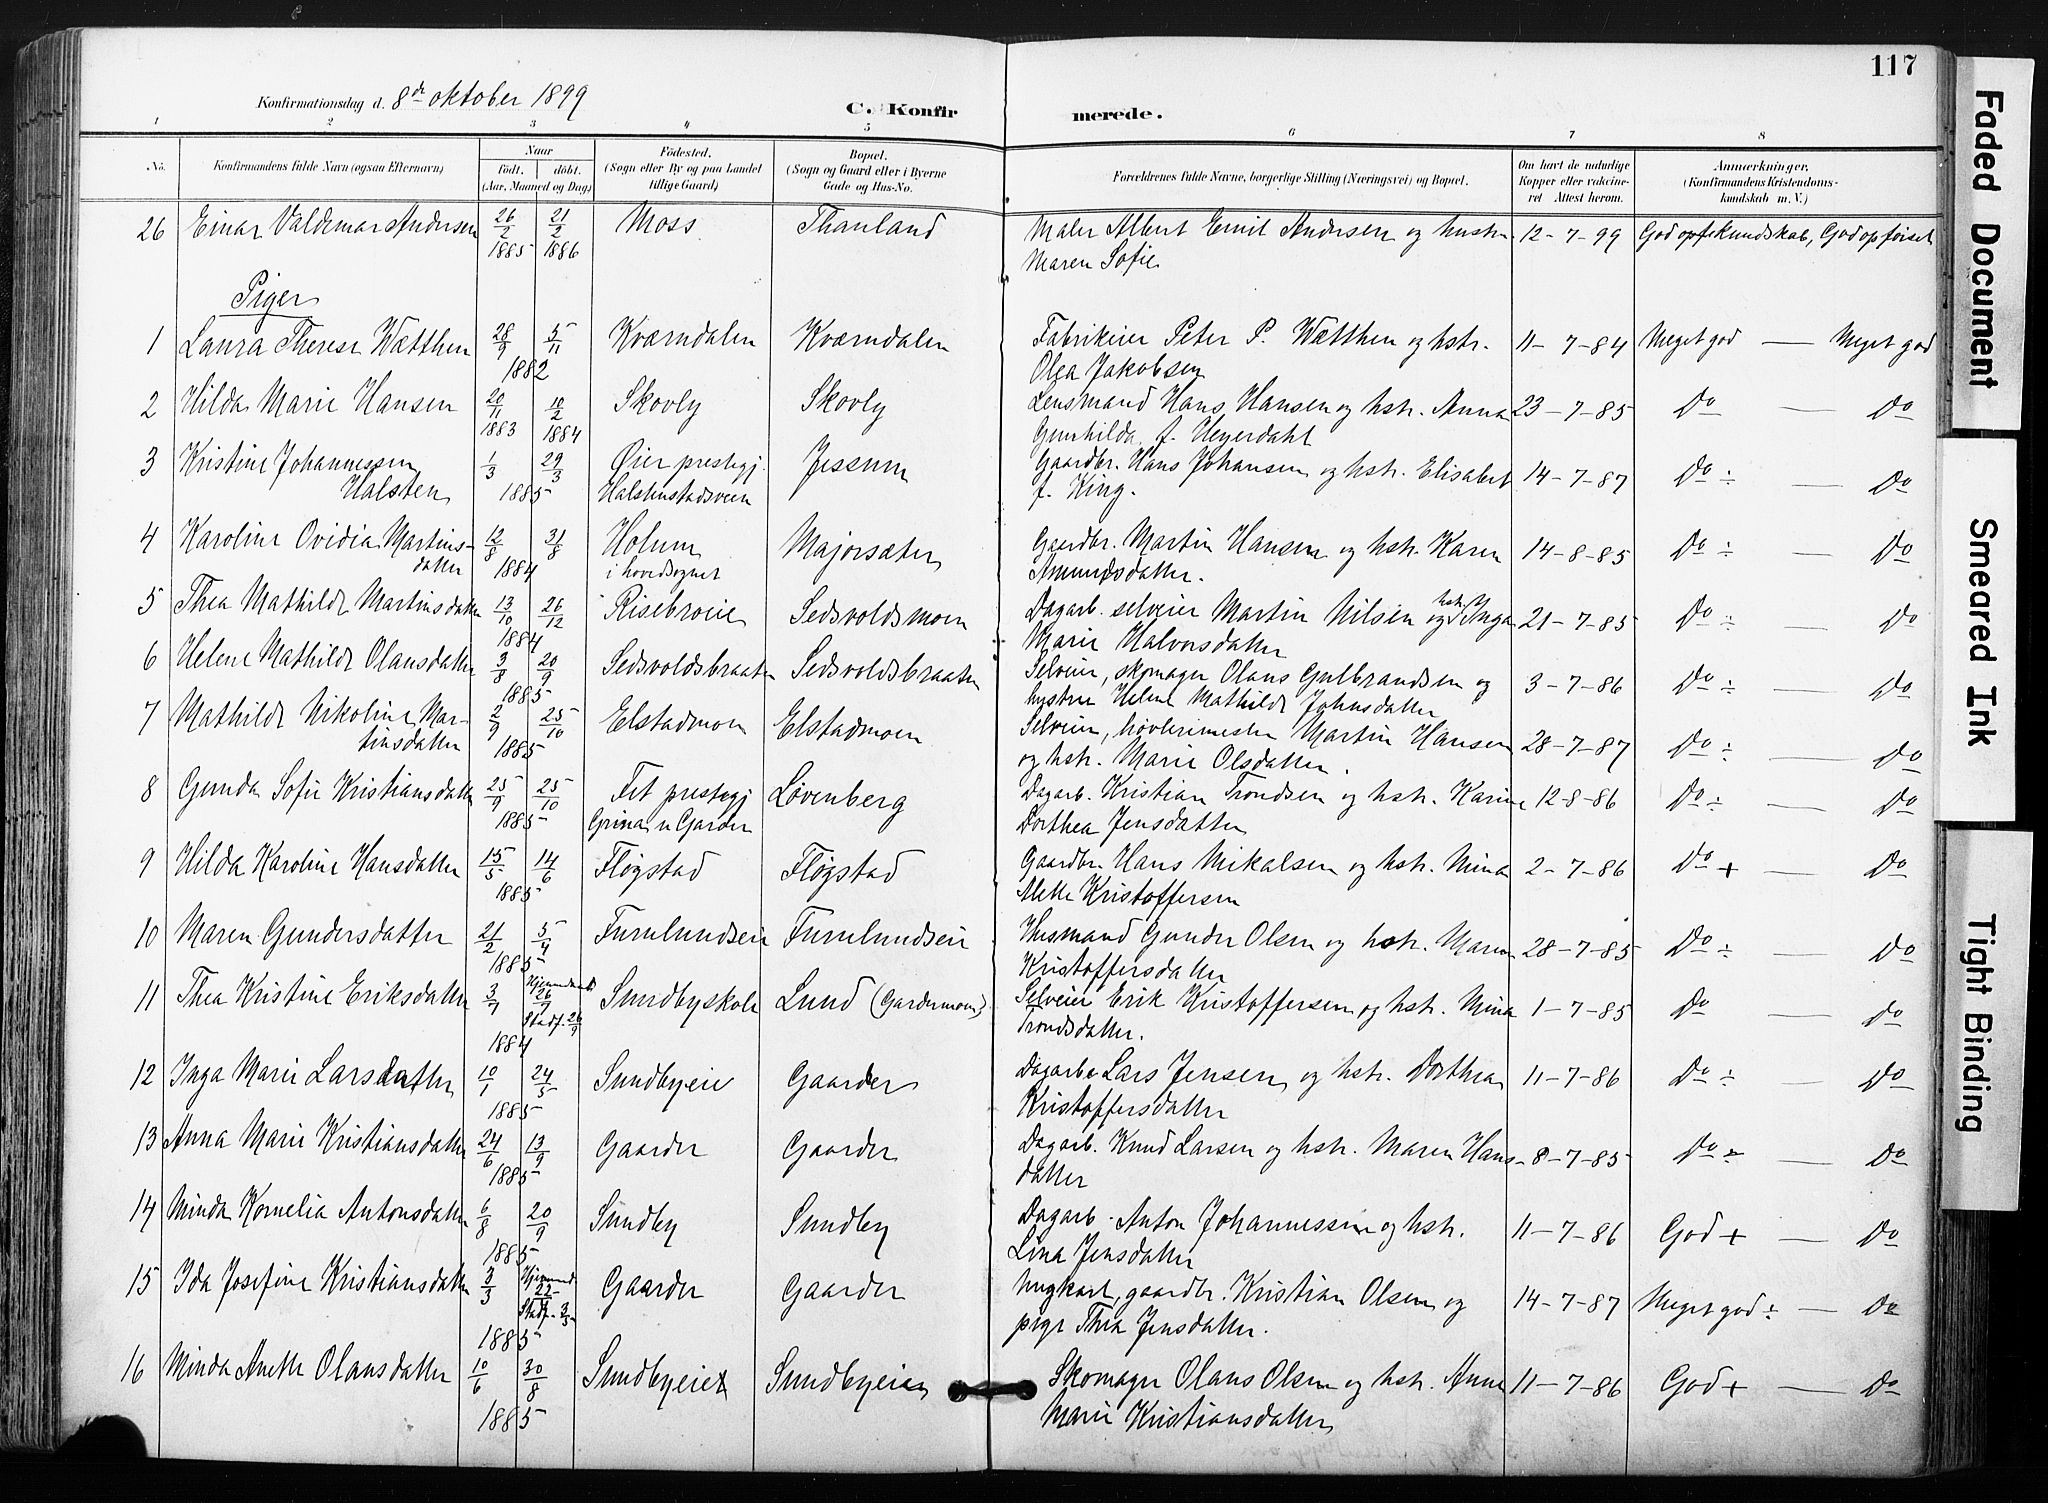 117
Konfirmationsdag d. 8de oktober 1899
C. Konfirmerede.
1 2 3 4 5 6 7 8
No. Konfirmandens fulde Navn (ogsaa Efternavn) Naar født. døbt. (Aar, Maaned og Dag) Fødested. (Sogn eller By og paa Landet tillige Gaard) Bopæl. (Sogn og Gaard eller i Byerne Gade og Hus-No. Forældrenes fulde Navne, borgerlige Stilling (Næringsvei) og Bopæl. Om havt de naturlige Kopper eller vaccineret Attest herom. Anmærkninger. (Konfirmandens Kristendomskundskab m. V.)
26 Einar Valdemar Andersen 26/2 1885 21/2 1886 Moss Thanland Maler Albert Emil Andersen og hustr. 12-7-99 God opf kundskab, God opførsel
Maren Sofie
Piger
1 Laura Therese Wætthen 28/9 5/11 1882 Kværndalen Kværndalen Fabrikeier Peter P. Wætthen og hstr. 11-7-84 Meget god — Meget god
Olea Jakobsen
2 Hilda Marie Hansen 20/11 1883 10/2 1884 Skovly Skovly Lensmand Hans Hansen og hstr. Anna 23-7-85 Do — Do
Gunhilda f. Heyerdahl
3 Kristine Johannessen 1/3 29/3 Øier prestegj. Jessum Gaardbr. Hans Johansen og hstr. Elisabet 14-7-87 Do ÷ — Do
Halsten 1885 Halstenstadsveen f. King.
4 Karoline Ovidia Martins- 12/8 31/8 Holum Majorsæter Gaardbr. Martin Hansen og hstr. Karen 14-8-85 Do ÷ — Do
datter 1884 i hovedsognet Amundsdatter.
5 Thea Mathilde Martinsdatter 13/10 26/12 Risebroeie Sedsvoldsmoen Dagarb. selveier Martin Nilsen og hstr. Inga 21-7-85 Do ÷ — Do
1884 Marie Halvorsdatter
6 Helene Mathilde Olausdatter 3/8 20/9 Sedsvoldsbraaten Sedsvoldsbraaten Selveier, skomager Olaus Gulbrandsen og 3-7-86 Do ÷ — Do
1885 hustru Helene Mathilde Johnsdatter
7 Mathilde Nikoline Mar- 2/9 25/10 Elstadmoen Elstadmoen Selveier, høvlerimester Martin Hansen 28-7-87 Do ÷ — Do
tinsdatter 1885 og hstr. Marie Olsdatter.
8 Gunda Sofie Kristiansdatter 25/9 25/10 Fet prestegj Løvenberg Dagarb. Kristian Trondsen og hstr. Karine 12-8-86 Do ÷ — Do
1885 Grina u Garder Dorthea Jensdatter
9 Hilda Karoline Hansdatter 15/5 14/6 Fløgstad Fløgstad Gaardbr. Hans Mikalsen og hstr. Mina 2-7-86 Do + — Do
1885 Mette Kristoffersen
10 Maren Gundersdatter 21/2 5/9 Furulundseie Furulundseie Husmand Gunder Olsen og hstr. Maren 28-7-85 Do ÷ — Do
1885 Kristoffersdatter
11 Thea Kristine Eriksdatter 3/7 Hjemmedøbt 26/7 Stadf. 26/9 Sundbyskole Lund (Gardermoen) Selveier Erik Kristoffersen og hstr. Mina 1-7-85 Do — Do
1884 Trondsdatter.
12 Inga Marie Larsdatter 10/1 24/5 Sundbyeie Gaarder Dagarbe Lars Jensen og hstr. Dorthea 11-7-86 Do ÷ — Do
1885 Kristoffersdatter
13 Anna Marie Kristiansdatter 24/6 13/9 Gaarder Gaarder Dagarb. Knud Larsen og hstr. Maren Hans- 8-7-85 Do ÷ — Do
1885 datter
14 Minda Kornelia Antonsdatter 6/8 20/9 Sundby Sundby Dagarb. Anton Johannessen og hstr. 11-7-86 God + — Do
1885 Lina Jensdatter
15 Ida Josefine Kristiansdatter 3/3 Gaarder Gaarder Ungkarl, gaardbr. Kristian Olsen og 14-7-87 Meget god ÷ — Do
1885 pige Thea Jensdatter.
16 Minda Anette Olausdatter 10/6 30/8 Sundbyeie Sundbyeie Skomager Olaus Olsen og hstr. Anne 11-7-86 God + — Do
1885 Marie Kristiansdatter
Faded Document
Smeared Ink
Tight Binding